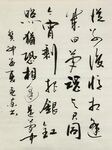 從別後憶相逢
幾回魂夢與君同
今宵剩把銀釭
照猶恐相逢是夢
中